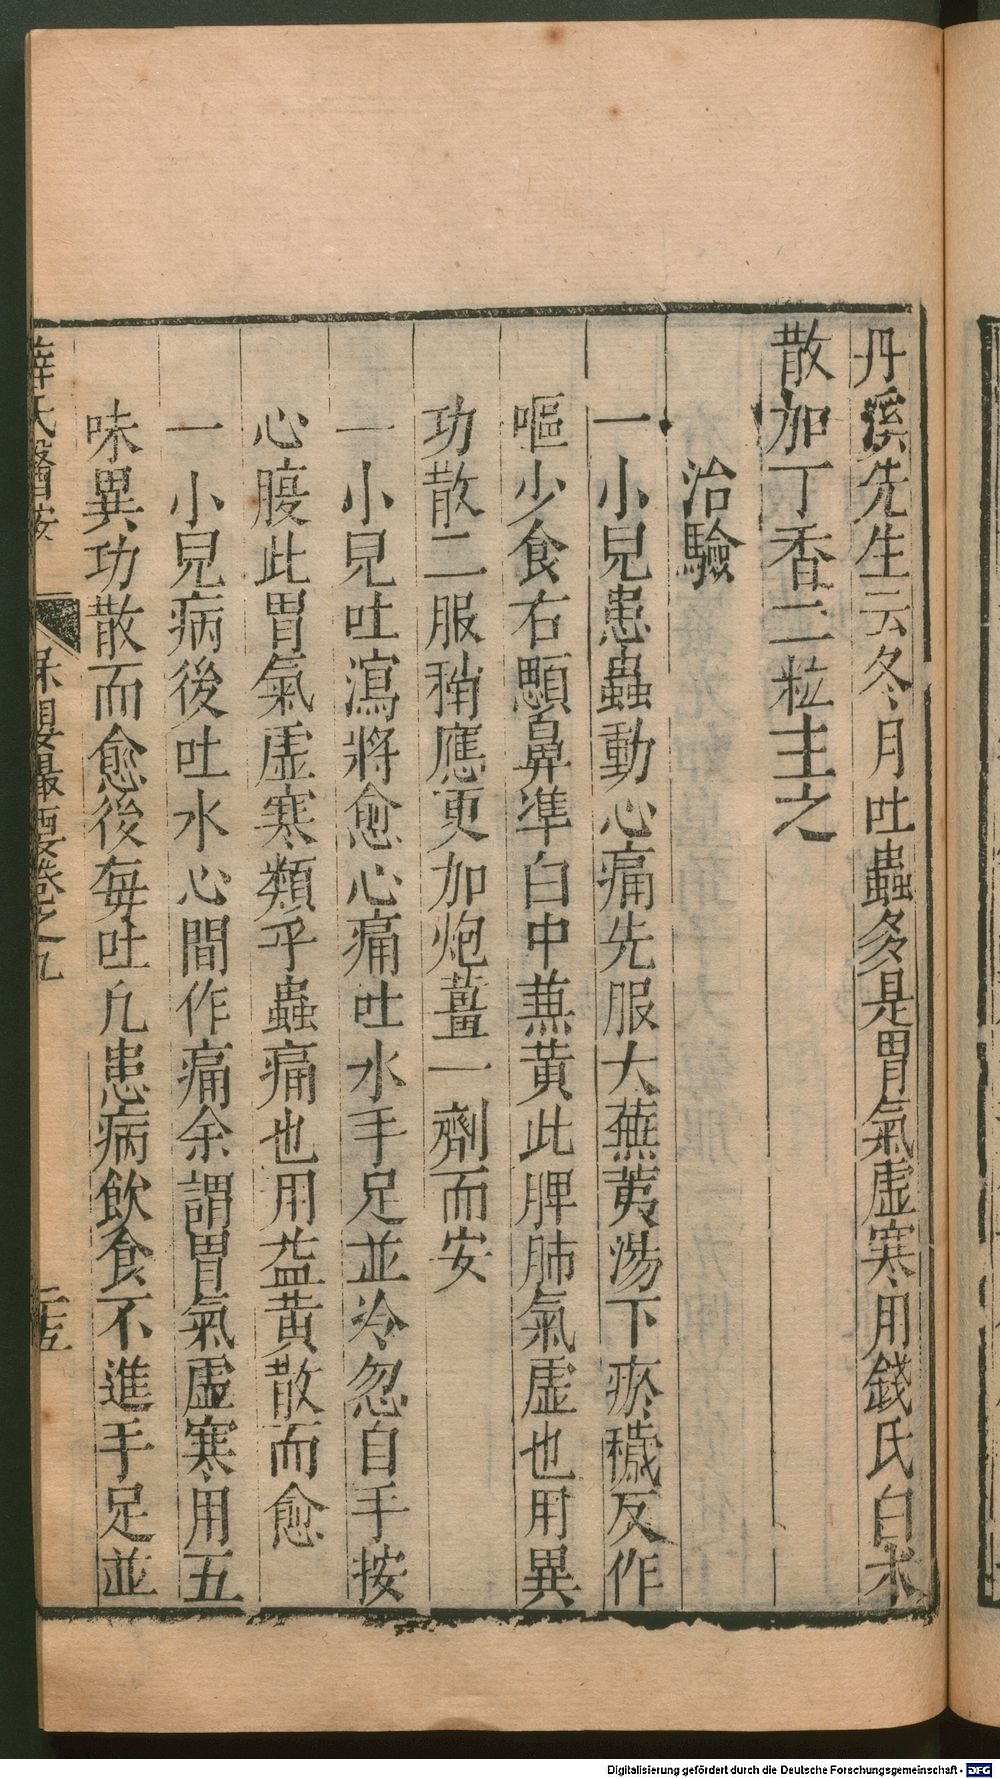 丹溪先生云冬月吐蟲多是胃氣虛寒用錢氏白木
散加丁香二粒主之
治驗
一小兒患蟲動心痛先服大蕪荑湯下瘀穢反作
嘔少食右顋鼻準白中兼黃此脾肺氣虛也用異
功散二服稍應更加炮薑一劑而安
一小兒吐瀉將愈心痛吐水手足並冷忽自手按
心腹此胃氣虛寒類乎蟲痛也用益黃散而愈
一小兒病後吐水心間作痛余謂胃氣虛寒用五
味異功散而愈後每吐凡患病飲食不進手足並
薛氏醫按 保嬰撮要卷之九 二十五
Digitalisierung gefördert durch die Deutsche Forschungsgemeinschaft - DFG